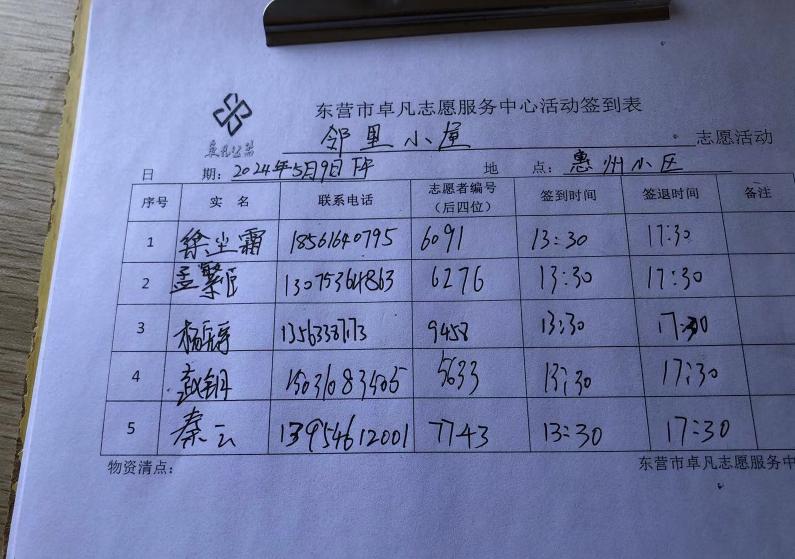 东营市卓凡志愿服务中心活动签到表
卓凡公益
邻里小屋 志愿活动
日 期：2024年5月9日下午 地 点：惠州小区
序号 实 名 联系电话 志愿者编号（后四位） 签到时间 签退时间 备注
1 徐尘霜 18561640795 6091 13:30 17:30
2 孟繁姬 13075364863 6276 13:30 17:30
3 杨 9458 13:30 17:30
4 赵钥 15031083505 5633 13:30 17:30
5 秦云 13954612001 7743 13:30 17:30
物资清点： 东营市卓凡志愿服务中